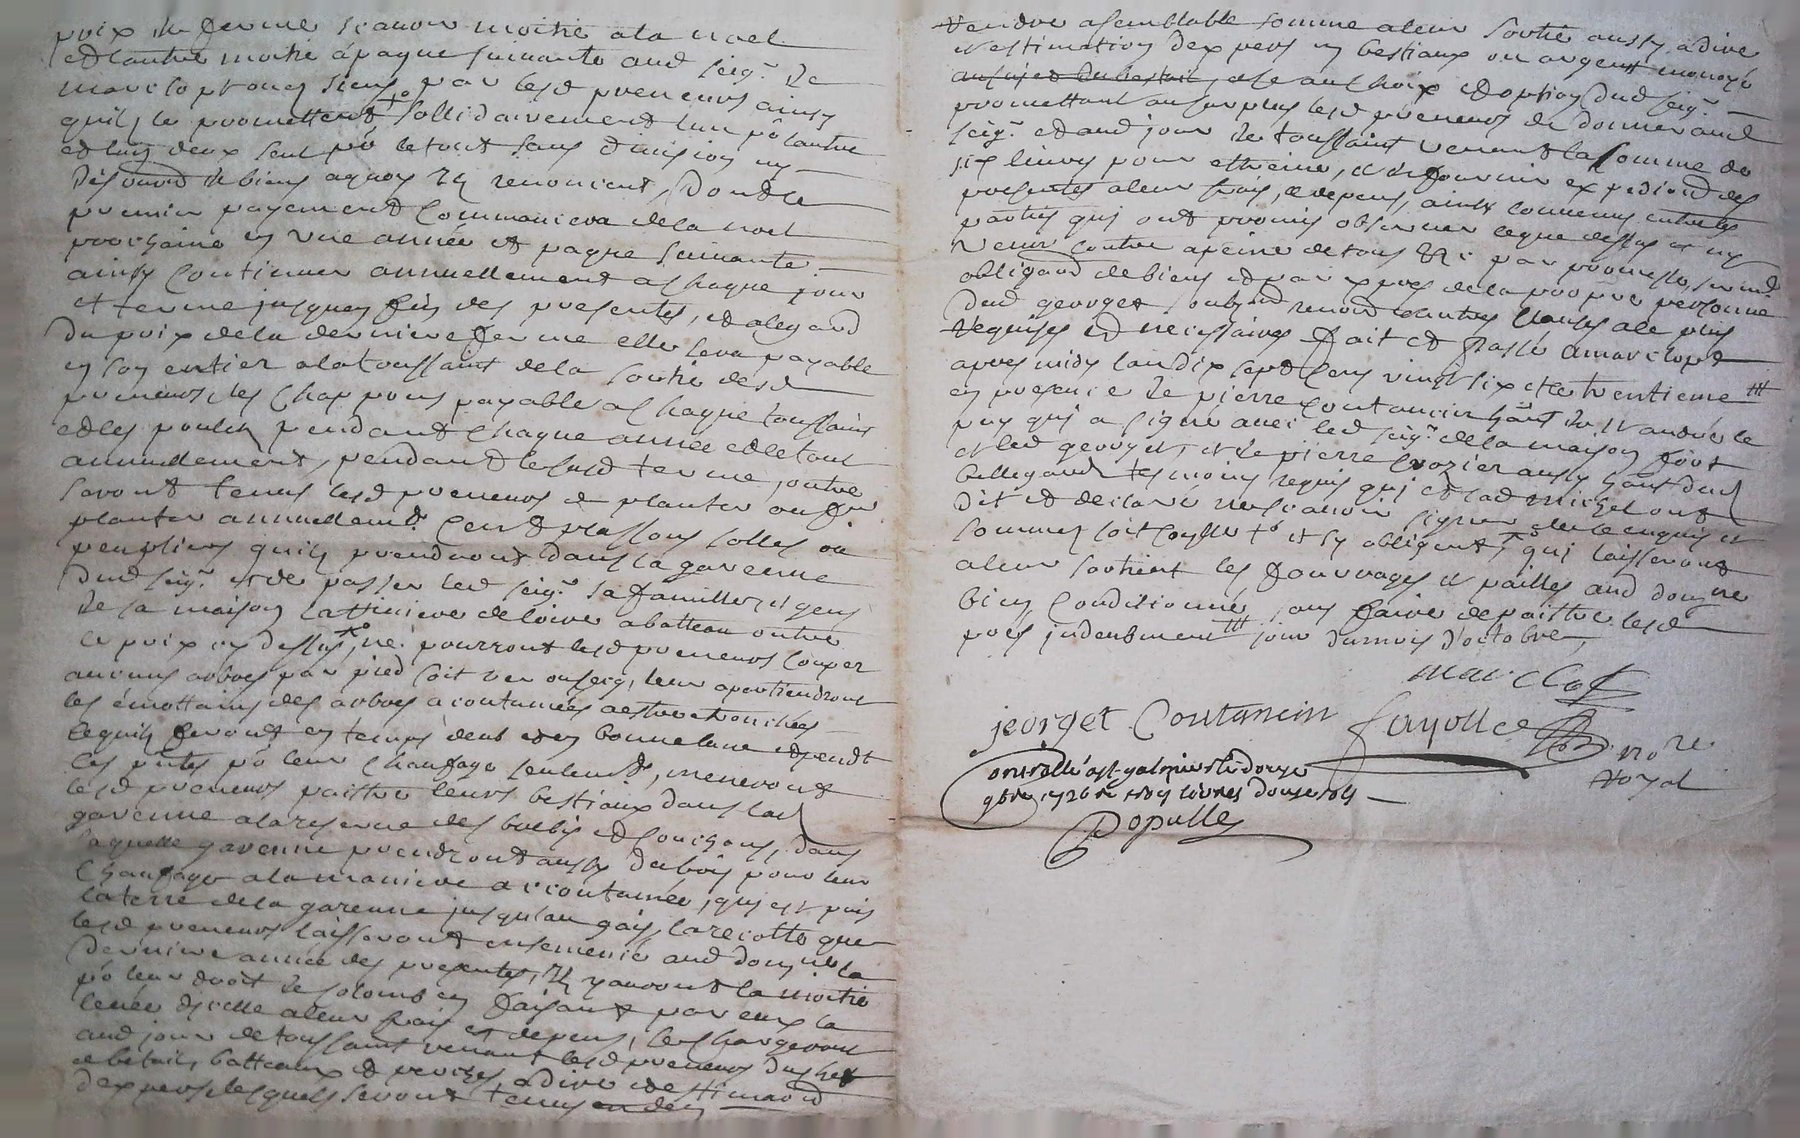 prix de ferme scavoir moitié a la noel
et lautre moitié a paque suivante aud seigr de
marclop ou es siens, par lesd preneurs ainsy
quils le promettent sollidairement lun pō lautre
et lun deux seul pō le tout sans division ny
de biens a quoy ils renoncent, dont le
premier payement commancera de la noel
prochaine en une année et paque suivante
ainsy continuer annuellement a chaque jour
et terme jusques fin des presentes, et alegard
du prix de la derniere ferme elle sera payable
en son entier a la toussaint de la sortie desd
preneurs, les chappons payable a chaque toussaint
et les poulets pendant chaque année et le tout
annuellement, pendant le susd terme, outre
seront tenus lesd preneurs de planter ou fre
planter annuellemt cent plassons solles ou
peupliers quils prendront dans la garenne
dud seigr et de passer led seigr sa famille et gens
de sa maison la riviere de loire a batteau outre
ce prix cy dessus, ne pourront lesd preneurs couper
aucuns arbres par pied soit ver ou secq, leur apartiendront
les émottains des arbres acoutumées a estre
lequils feront en temps deub et en bonne lune
pō leur chaufage seulemt, meneront
lesd preneurs paistre leurs bestiaux dans lad
garenne a la reserve des brebis et couchons, dans
laquelle garenne prendront aussy du bois pour leur
chaufage a la maniere accoutumée, qui est puis
la terre de la garenne jusquau gais, la recolte que
lesd preneurs laisseront ensemencé aud domne la
derniere année des presentes, ils y auront la moitié
pō leur droit de colons en faisant par eux la
levée dicelle a leur frais et depens, se chargeront
aud jour de toussaint venant lesd preneurs du
de betail, batteaux et a dire
dexpers lesquels seront tenus en
rendre a semblable somme a leur sortie aussy a dire
et estimation dexpers en bestiaux ou argent monoyé
au sujet du bestail, et le au choix et option dud seigr
promettant au surplus lesd preneurs de donner aud
seigr et aud jour de toussaint venant la somme de
six livres pour etreine, et de fournir expediond des
presentes a leur frais, et depens, ainsy convenus entre les
parties qui ont promis observer ce que dessus et ny
venir contre a peine de tous par promesse, sermt
obligaon de biens et par expres de la propre personne
dud georget renond et autres clauses a ce plus
requises et necessaires fait et passé a marclopt
apres midy lan dix sept cens vingt six et le trentieme
en presence de pierre coutancin hant de st andré le
puy qui a signé avec led seigr de la maison fort
et led georget, et de pierre crozier aussy hant dud
bellegarde tesmoins requis qui et lad michel ont
dit et declaré ne scavoir signer de ce enquis et
sommez soit et sy obligent, qui laisseront
a leur sortient les fourrages et pailles aud domne
bien conditionné, sans faire depaistre lesd
pres induement jour du mois d'octobre,
marclopt
jeorget Coutancin fayolle
nore
royal
a st galmier le douze
9bre 1726 re livres douze sols
Populle